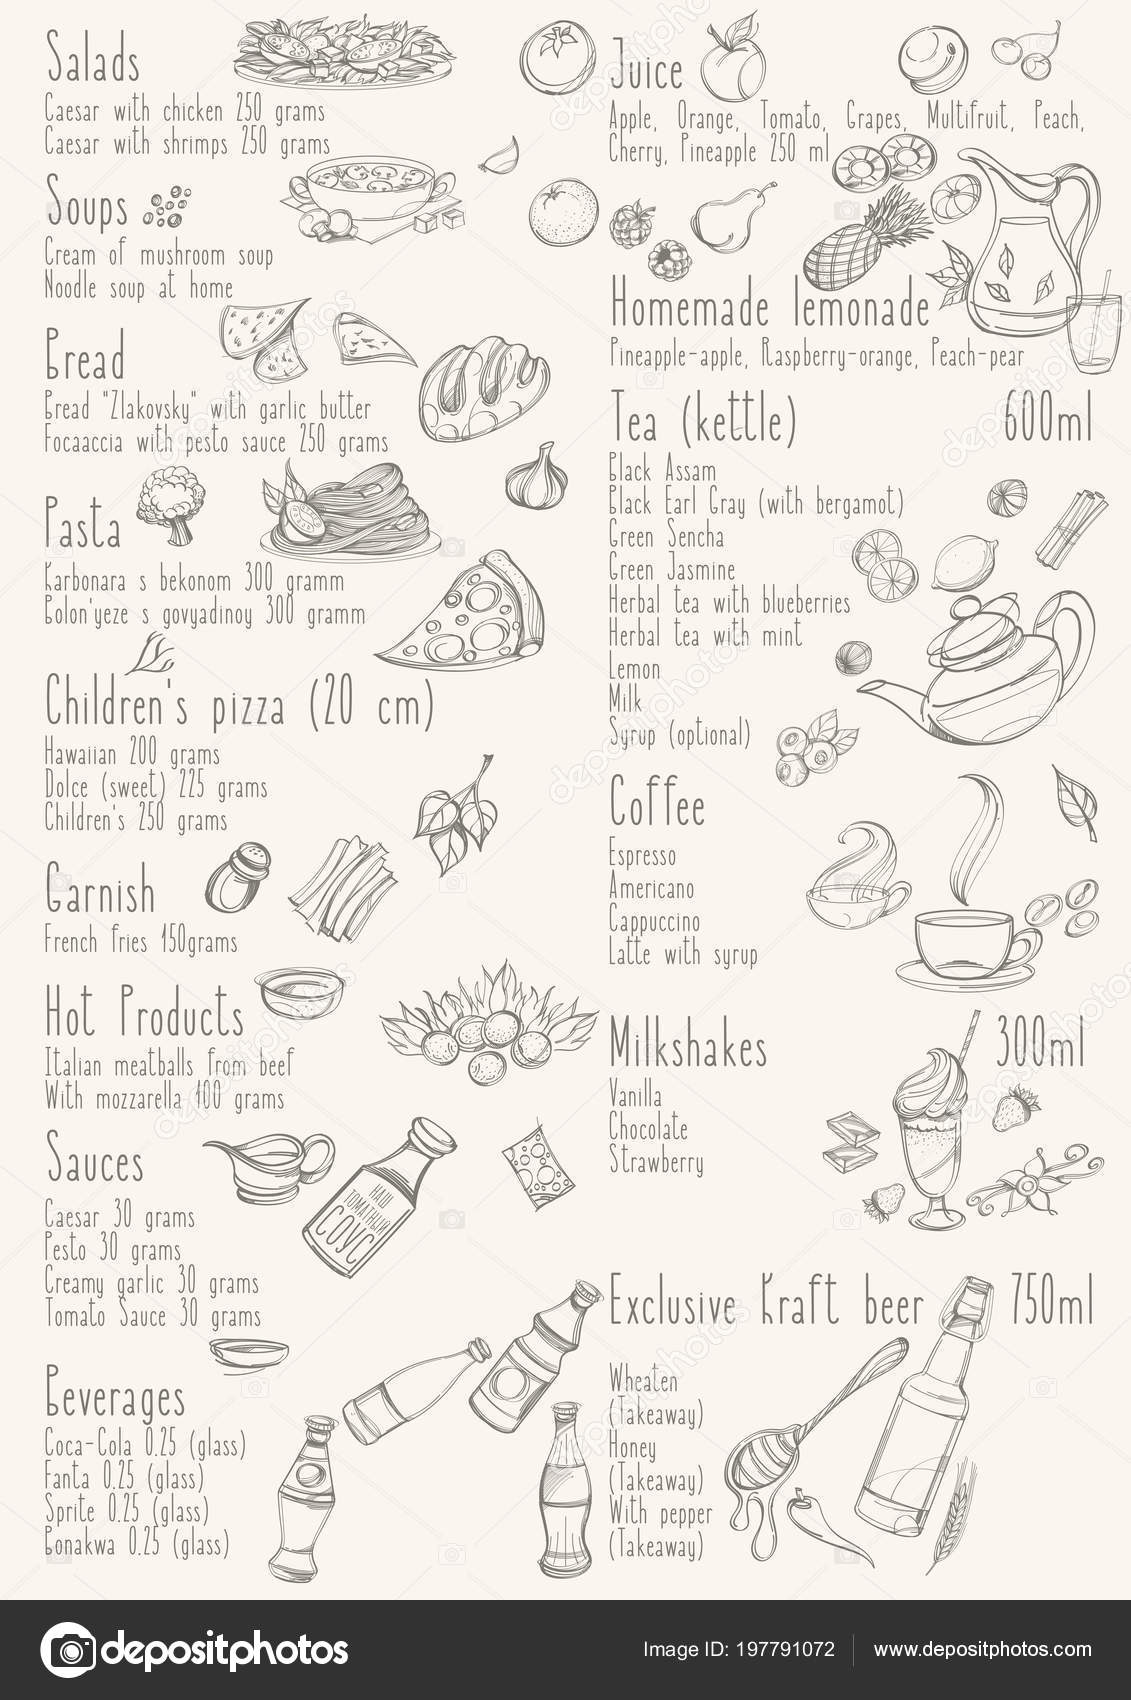 Salads
Caesar with chicken 250 grams
Caesar with shrimps 250 grams
Soups
Cream of mushroom soup
Noodle soup at home
Bread
Bread "Zlakovsky" with garlic butter
Focaaccia with pesto sauce 250 grams
Pasta
Karbonara s bekonom 300 gramm
Bolon'yeze s govyadinoy 300 gramm
Children's pizza (20 cm)
Hawaiian 200 grams
Dolce (sweet) 225 grams
Children's 250 grams
Garnish
French fries 150grams
Hot Products
Italian meatballs from beef
With mozzarella 100 grams
Sauces
Caesar 30 grams
Pesto 30 grams
Creamy garlic 30 grams
Tomato Sauce 30 grams
НАШ
ТОМАТНЫЙ
СОУС
Beverages
Coca-Cola 0.25 (glass)
Fanta 0.25 (glass)
Sprite 0.25 (glass)
Bonakwa 0.25 (glass)
Juice
Apple, Orange, Tomato, Grapes, Multifruit, Peach,
Cherry, Pineapple 250 ml
Homemade lemonade
Pineapple-apple, Raspberry-orange, Peach-pear
Tea (kettle) 600ml
Black Assam
Black Earl Gray (with bergamot)
Green Sencha
Green Jasmine
Herbal tea with blueberries
Herbal tea with mint
Lemon
Milk
Syrup (optional)
Coffee
Espresso
Americano
Cappuccino
Latte with syrup
Milkshakes 300ml
Vanilla
Chocolate
Strawberry
Exclusive Kraft beer 750ml
Wheaten
(Takeaway)
Honey
(Takeaway)
With pepper
(Takeaway)
depositphotos
Image ID: 197791072 www.depositphotos.com